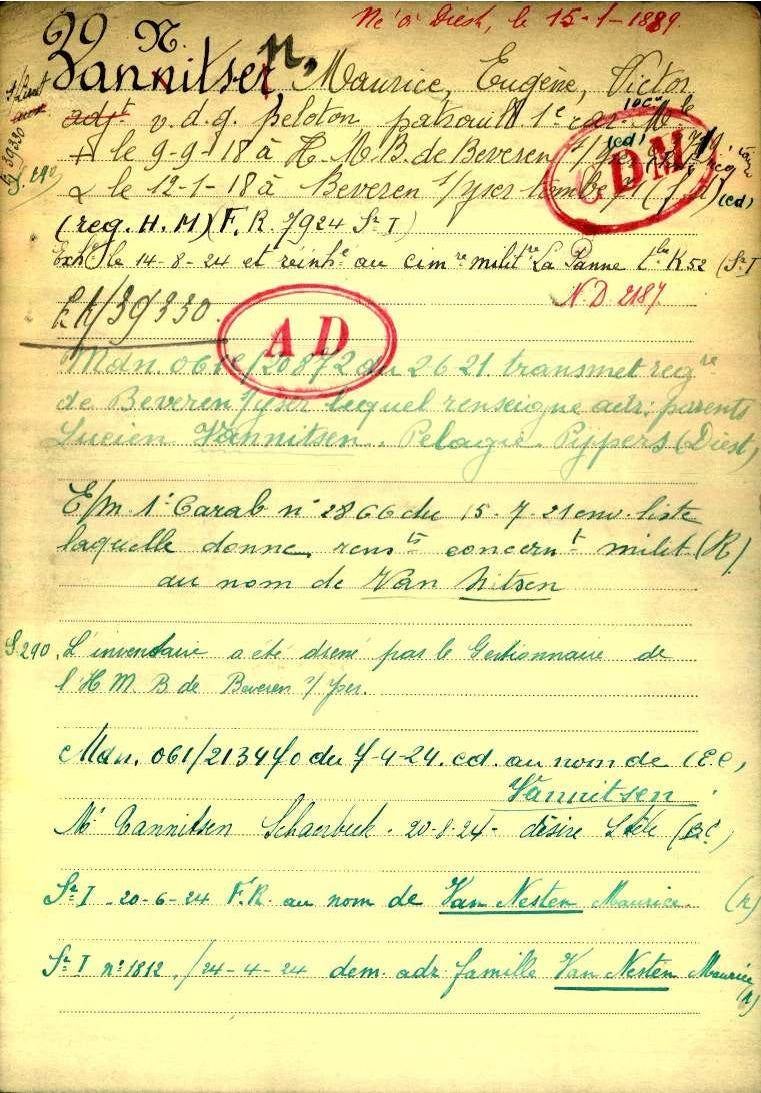 Né à Diest, le 15-1-1889.
N.
Vannitsen, Maurice, Eugène, Victor
adjt v. d. g. peloton 1e car.
+ le 9-9-18 à H. M. B. de Beveren s/yser
le 12-1-18 à Beveren s/yser tombe (cd)
CDM
(reg. H. M) (F. R. 7924 Sr I)
Exhé le 14-8-24 et réinhé au cimre militre La Panne tbe K52 (Sr I
N. D. 2187.
EK/39330.
AD
Mdn. 061e/20872 du 2 6 21 transmet regre
de Beveren s/yser lequel renseigne adr. parents
Lucien Vannitsen. Pelagie Pijpers (Diest)
E/m 1e Carab n° 2866 du 15-7-21 env. liste
laquelle donne rensts concernt milit (R)
au nom de Van Nitsen
S. 290. L'inventaire a été dréné par le Gestionnaire de
l'H M B de Beveren s/Yser.
Mdn. 061/2134fo du 7-4-24. cd. au nom de (EC)
Vannitsen
Mr Vannitsen Schaerbeek - 20-8-24 - désire Stèle (BC)
Sr I - 20-6-24 F. R. au nom de Van Nesten Maurice. (R)
Sr I n° 1812 / 24-4-24 dem. adr. famille Van Nesten Maurice
(R)